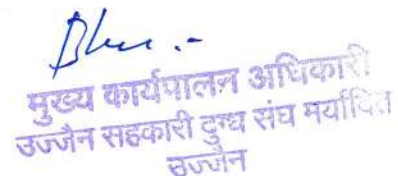 मुख्य कार्यपालन अधिकारी
उज्जैन सहकारी दुग्ध संघ मर्यादित
उज्जैन